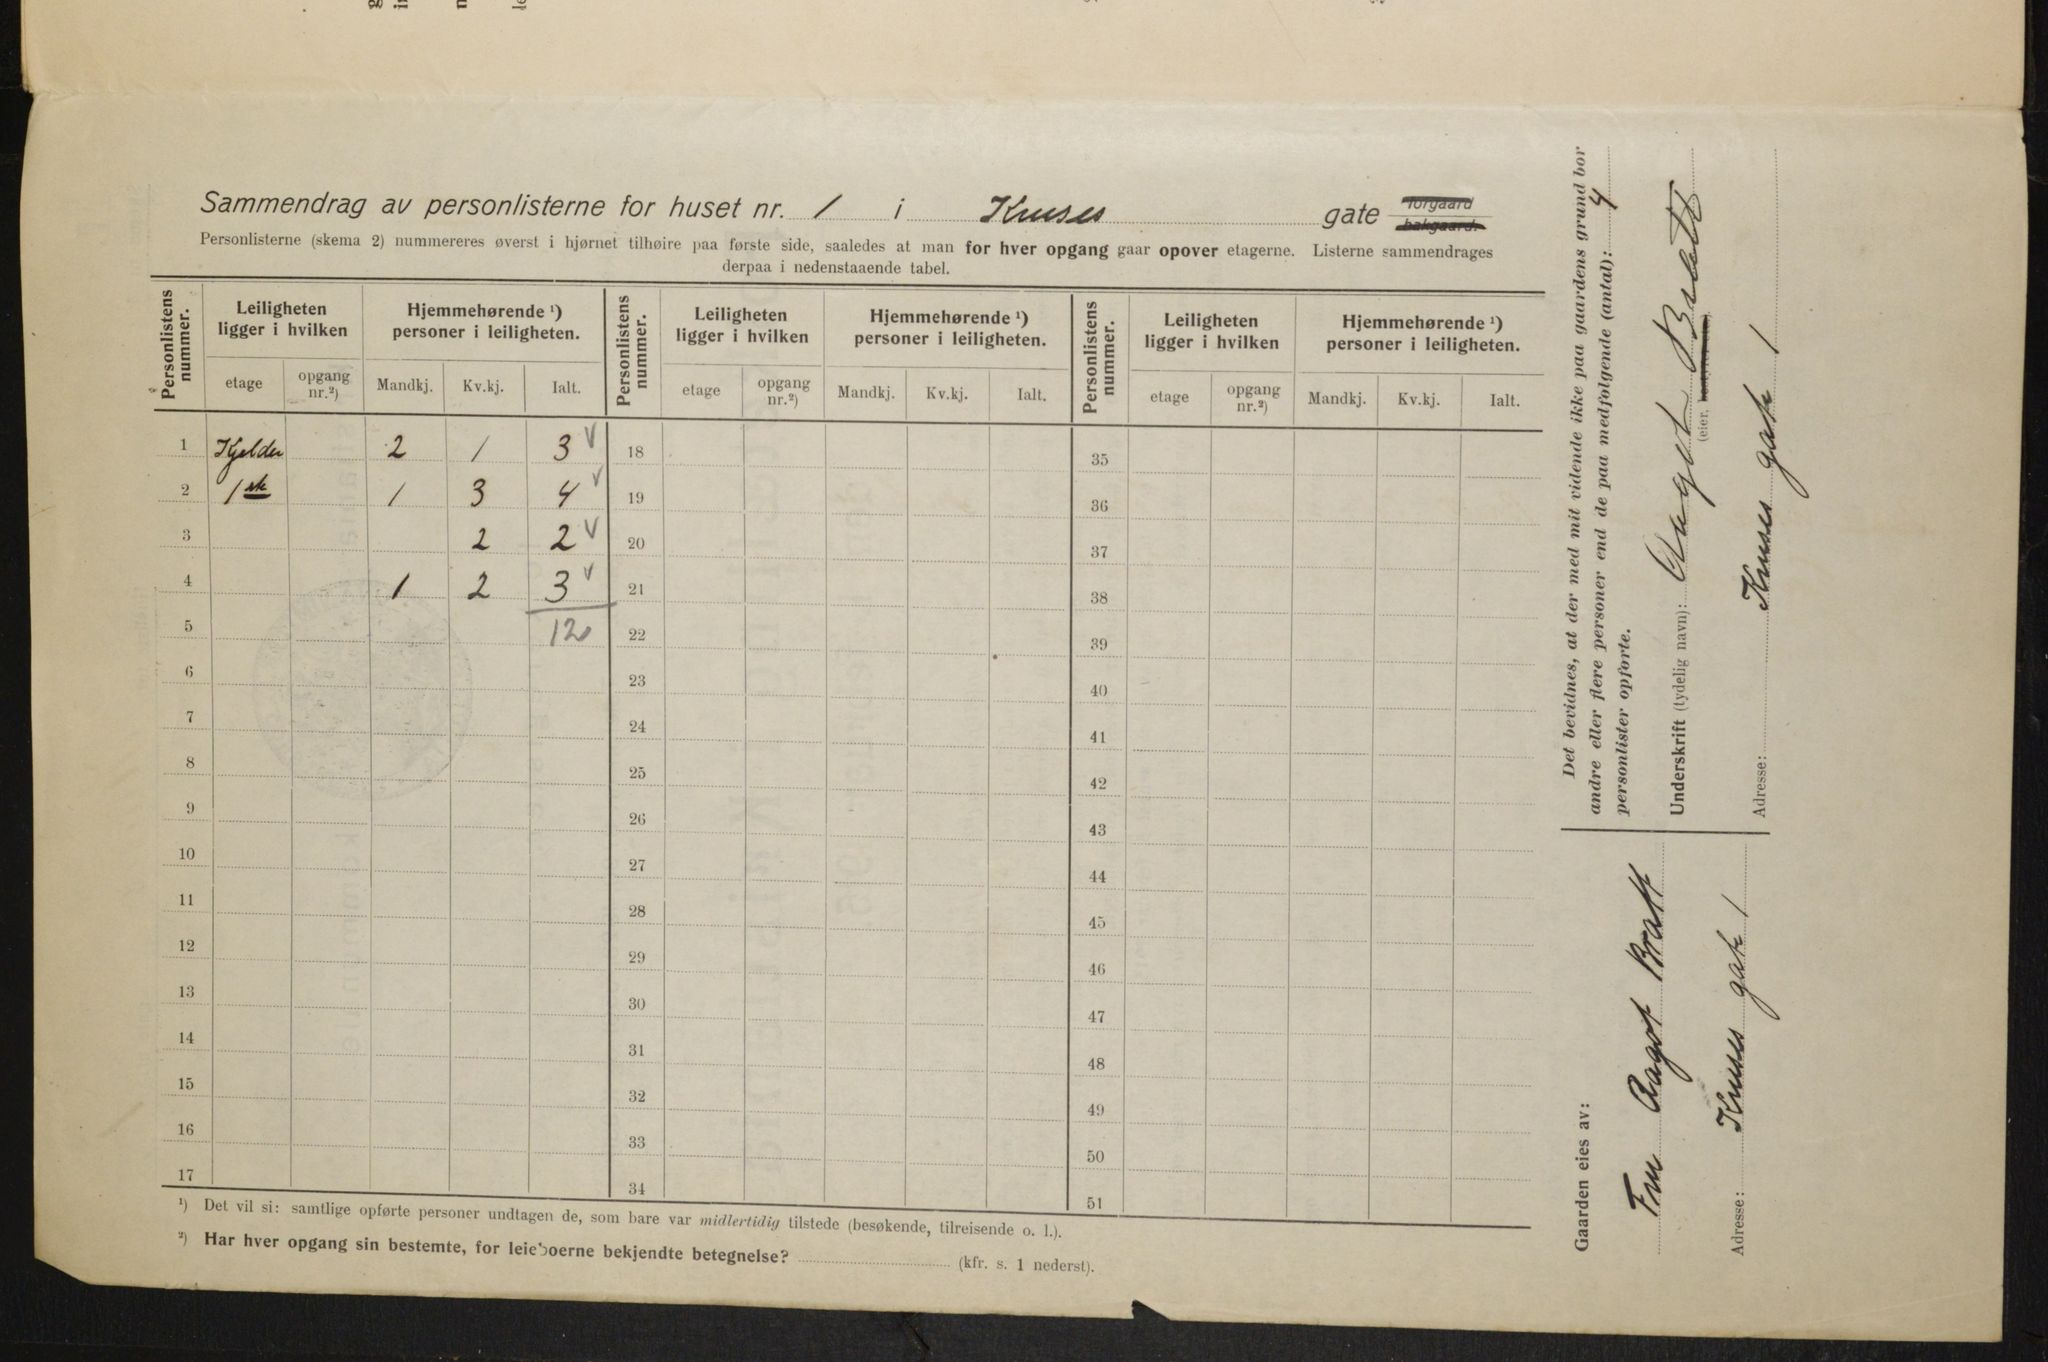 Sammendrag av personlisterne for huset nr. 1 i Kruses gate forgaard bakgaard.
Personlisterne (skema 2) nummereres øverst i hjørnet tilhøire paa første side, saaledes at man for hver opgang gaar opover etagerne. Listerne sammendrages
derpaa i nedenstaaende tabel.
Personlistens nummer. Leiligheten ligger i hvilken Hjemmehørende ¹) personer i leiligheten. Personlistens nummer. Leiligheten ligger i hvilken Hjemmehørende ¹) personer i leiligheten. Personlistens nummer. Leiligheten ligger i hvilken Hjemmehørende ¹) personer i leiligheten.
etage opgang nr.²) Mandkj. Kv.kj. Ialt. etage opgang nr.²) Mandkj. Kv.kj. Ialt. etage opgang nr.²) Mandkj. Kv.kj. Ialt.
1 Kjelder 2 1 3 √ 18 35
2 1ste 1 3 4 √ 19 36
3 2 2 √ 20 37
4 1 2 3 √ 21 38
5 12 22 39
6 23 40
7 24 41
8 25 42
9 26 43
10 27 44
11 28 45
12 29 46
13 30 47
14 31 48
15 32 49
16 33 50
17 34 51
¹) Det vil si: samtlige opførte personer undtagen de, som bare var midlertidig tilstede (besøkende, tilreisende o. l.).
²) Har hver opgang sin bestemte, for leieboerne bekjendte betegnelse? (kfr. s. 1 nederst).
Det bevidnes, at der med mit vidende ikke paa gaardens grund bor
andre eller flere personer end de paa medfølgende (antal): 4
personlister opførte.
Underskrift (tydelig navn): Aagot Bratt
(eier,
Adresse: Kruses gate 1
Gaarden eies av:
Fru Aagot Bratt
Adresse: Kruses gate 1